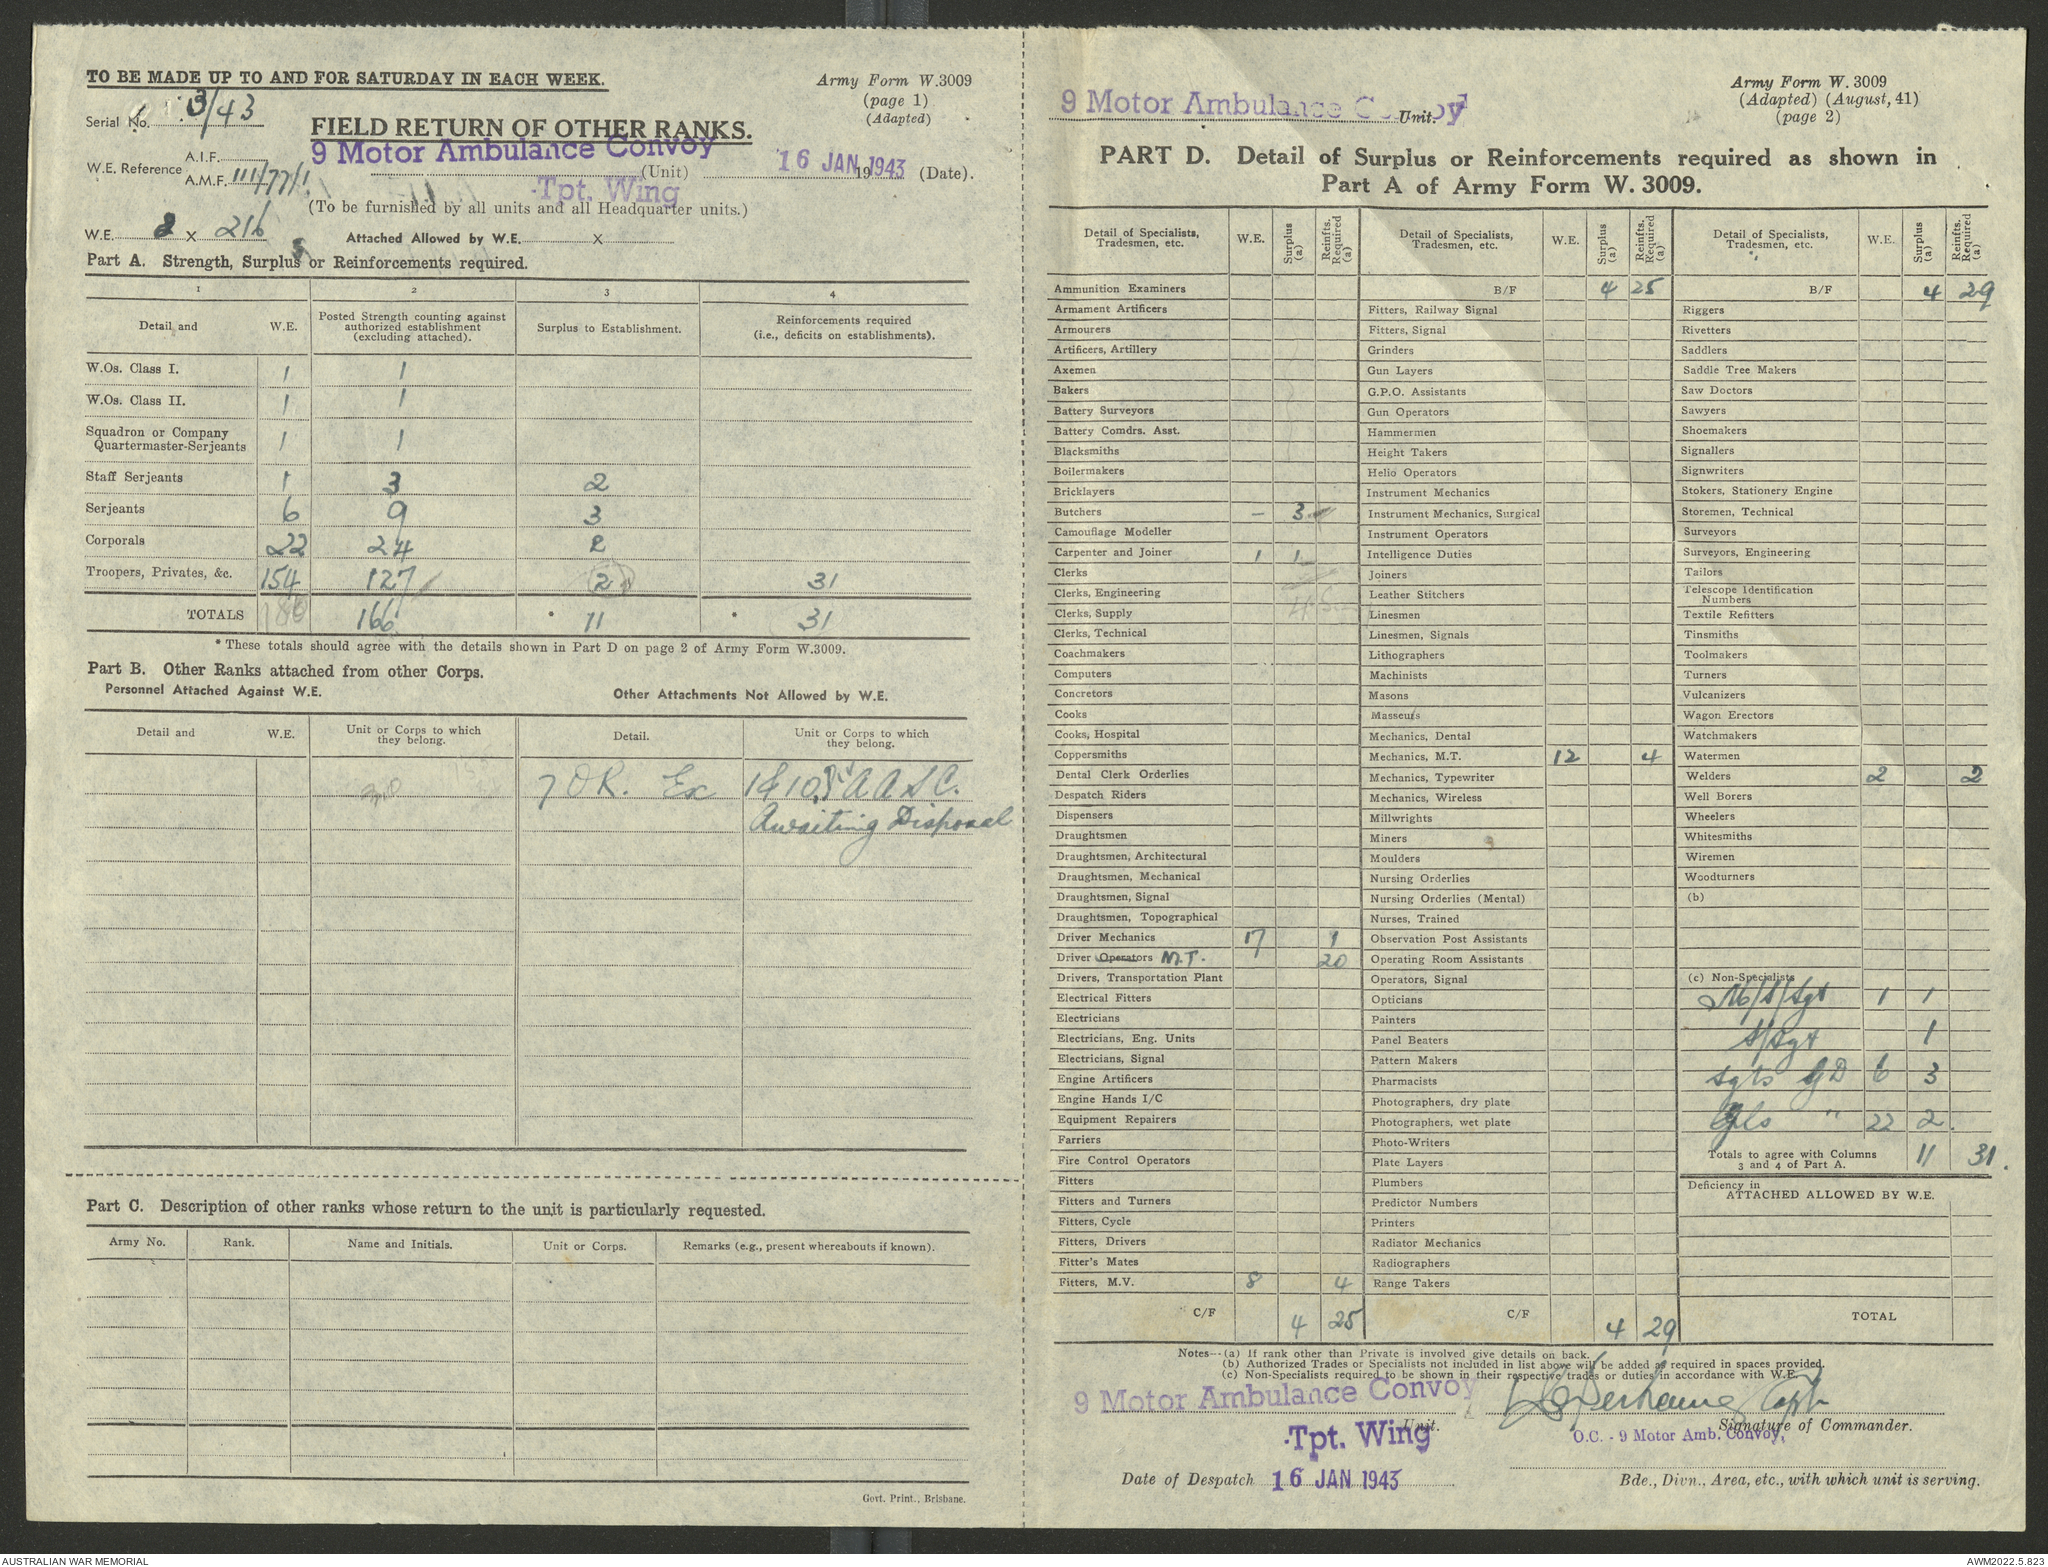 TO BE MADE UP TO AND FOR SATURDAY IN EACH WEEK.
Army Form W.3009
(page 1)
(Adapted)
Serial No. 3/43
FIELD RETURN OF OTHER RANKS.
9 Motor Ambulance Convoy
W.E. Reference A.I.F.
A.M.F. 111/77/1
(Unit) 16 JAN 1943 19 (Date).
Tpt. Wing
(To be furnished by all units and all Headquarter units.)
W.E. 2 x 216 Attached Allowed by W.E. x
Part A. Strength, Surplus or Reinforcements required.
1 2 3 4
Detail and W.E. Posted Strength counting against authorized establishment (excluding attached). Surplus to Establishment. Reinforcements required (i.e., deficits on establishments).
W.Os. Class I. 1 1
W.Os. Class II. 1 1
Squadron or Company Quartermaster-Serjeants 1 1
Staff Serjeants 1 3 2
Serjeants 6 9 3
Corporals 22 24 2
Troopers, Privates, &c. 154 127 31
TOTALS 186 166 * 11 * 31
* These totals should agree with the details shown in Part D on page 2 of Army Form W.3009.
Part B. Other Ranks attached from other Corps.
Personnel Attached Against W.E. Other Attachments Not Allowed by W.E.
Detail and W.E. Unit or Corps to which they belong. Detail. Unit or Corps to which they belong.
7 OR. Ex A A S C.
Awaiting Disposal
Part C. Description of other ranks whose return to the unit is particularly requested.
Army No. Rank. Name and Initials. Unit or Corps. Remarks (e.g., present whereabouts if known).
Govt. Print., Brisbane.
9 Motor Ambulance Convoy Unit.
Army Form W. 3009
(Adapted) (August, 41)
(page 2)
PART D. Detail of Surplus or Reinforcements required as shown in
Part A of Army Form W. 3009.
Detail of Specialists, Tradesmen, etc. W.E. Surplus (a) Reinfts. Required (a)
Ammunition Examiners
Armament Artificers
Armourers
Artificers, Artillery
Axemen
Bakers
Battery Surveyors
Battery Comdrs. Asst.
Blacksmiths
Boilermakers
Bricklayers
Butchers - 3
Camouflage Modeller
Carpenter and Joiner 1 1
Clerks
Clerks, Engineering
Clerks, Supply
Clerks, Technical
Coachmakers
Computers
Concretors
Cooks
Cooks, Hospital
Coppersmiths
Dental Clerk Orderlies
Despatch Riders
Dispensers
Draughtsmen
Draughtsmen, Architectural
Draughtsmen, Mechanical
Draughtsmen, Signal
Draughtsmen, Topographical
Driver Mechanics 17 1
Driver Operators M.T. 20
Drivers, Transportation Plant
Electrical Fitters
Electricians
Electricians, Eng. Units
Electricians, Signal
Engine Artificers
Engine Hands I/C
Equipment Repairers
Farriers
Fire Control Operators
Fitters
Fitters and Turners
Fitters, Cycle
Fitters, Drivers
Fitter's Mates
Fitters, M.V. 8 4
C/F 4 25
Detail of Specialists, Tradesmen, etc. W.E. Surplus (a) Reinfts. Required (a)
B/F 4 25
Fitters, Railway Signal
Fitters, Signal
Grinders
Gun Layers
G.P.O. Assistants
Gun Operators
Hammermen
Height Takers
Helio Operators
Instrument Mechanics
Instrument Mechanics, Surgical
Instrument Operators
Intelligence Duties
Joiners
Leather Stitchers
Linesmen
Linesmen, Signals
Lithographers
Machinists
Masons
Masseurs
Mechanics, Dental
Mechanics, M.T. 12 4
Mechanics, Typewriter
Mechanics, Wireless
Millwrights
Miners
Moulders
Nursing Orderlies
Nursing Orderlies (Mental)
Nurses, Trained
Observation Post Assistants
Operating Room Assistants
Operators, Signal
Opticians
Painters
Panel Beaters
Pattern Makers
Pharmacists
Photographers, dry plate
Photographers, wet plate
Photo-Writers
Plate Layers
Plumbers
Predictor Numbers
Printers
Radiator Mechanics
Radiographers
Range Takers
C/F 4 29
Detail of Specialists, Tradesmen, etc. W.E. Surplus (a) Reinfts. Required (a)
B/F 4 29
Riggers
Rivetters
Saddlers
Saddle Tree Makers
Saw Doctors
Sawyers
Shoemakers
Signallers
Signwriters
Stokers, Stationery Engine
Storemen, Technical
Surveyors
Surveyors, Engineering
Tailors
Telescope Identification Numbers
Textile Refitters
Tinsmiths
Toolmakers
Turners
Vulcanizers
Wagon Erectors
Watchmakers
Watermen
Welders 2 2
Well Borers
Wheelers
Whitesmiths
Wiremen
Woodturners
(b)
(c) Non-Specialists
S/Sgt 1 1
S/Sgt 1
Sgts GD 6 3
Cpls " 22 2
Totals to agree with Columns 3 and 4 of Part A. 11 31.
Deficiency in
ATTACHED ALLOWED BY W.E.
TOTAL
Notes—(a) If rank other than Private is involved give details on back.
(b) Authorized Trades or Specialists not included in list above will be added as required in spaces provided.
(c) Non-Specialists required to be shown in their respective trades or duties in accordance with W.E.
9 Motor Ambulance Convoy Unit.
Capt
Signature of Commander.
Tpt. Wing
O.C. - 9 Motor Amb. Convoy,
Date of Despatch 16 JAN 1943
Bde., Divn., Area, etc., with which unit is serving.
AUSTRALIAN WAR MEMORIAL
AWM2022.5.823